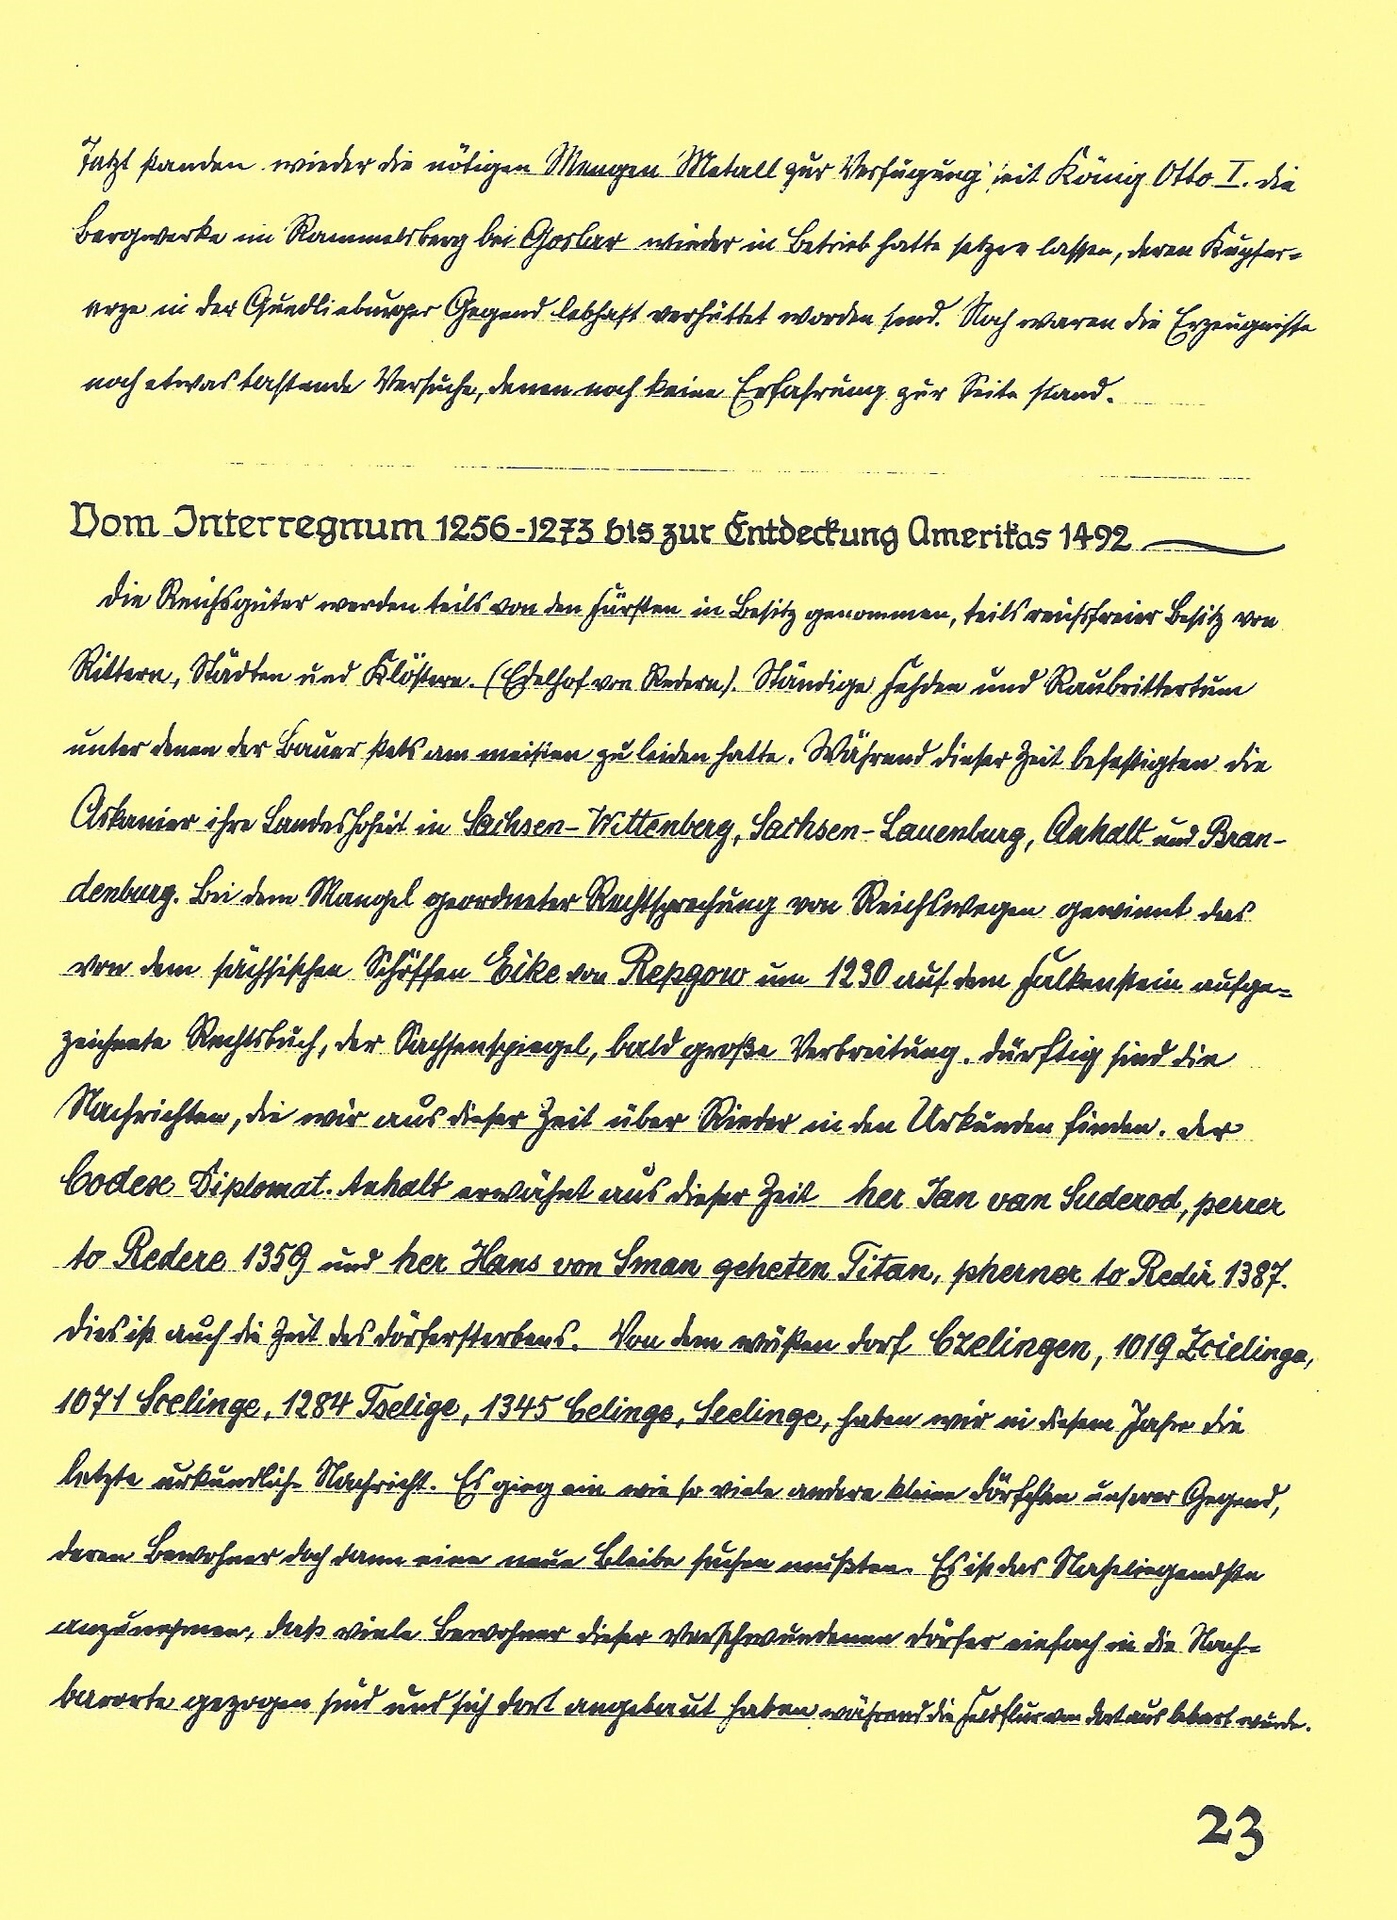 Jetzt standen wieder die nötigen Mengen Metall zur Verfügung seit König Otto I. die
Bergwerke im Rammelsberg bei Goslar wieder in Betrieb hatte setzen lassen, deren Kupfer-
erze in der Quedlinburger Gegend lebhaft verhüttet worden sind. Noch waren die Erzeugnisse
noch etwas tastende Versuche, denen noch keine Erfahrung zur Seite stand.
Vom Interregnum 1256-1273 bis zur Entdeckung Amerikas 1492
Die Reichsgüter werden teils von den Fürsten in Besitz genommen, teils reichsfreier Besitz von
Rittern, Städten und Klöstern. (Edelhof von Redern). Ständige Fehden und Raubrittertum
unter denen der Bauer stets am meisten zu leiden hatte. Während dieser Zeit befestigten die
Askanier ihre Landeshoheit in Sachsen-Wittenberg, Sachsen-Lauenburg, Anhalt und Bran-
denburg. Bei dem Mangel geordneter Rechtsprechung von Reichswegen gewinnt das
von dem sächsischen Schöffen Eike von Repgow um 1230 auf dem Falkenstein aufge-
zeichnete Rechtsbuch, der Sachsenspiegel, bald große Verbreitung. Dürftig sind die
Nachrichten, die wir aus dieser Zeit über Rieder in den Urkunden finden. Der
Codex Diplomat. Anhalt erwähnt aus dieser Zeit her Jan van Suderod, perrer
to Redere 1359 und her Hans von Sman geheten Titan, pherner to Redir 1387.
Dies ist auch die Zeit des Dörfersterbens. Von dem wüsten Dorf Czelingen, 1019 Zcielinge,
1071 Scelinge, 1284 Tselige, 1345 Celinge, Seelinge, haben wir in diesem Jahr die
letzte urkundliche Nachricht. Es ging ein wie so viele andere kleine Dörfchen unserer Gegend,
deren Bewohner doch dann eine neue Bleibe suchen mußten. Es ist das Naheliegendste
anzunehmen, daß viele Bewohner dieser verschwundenen Dörfer einfach in die Nach-
barorte gezogen sind und sich dort angebaut haben während die Feldflur von dort aus bebaut wurde.
23